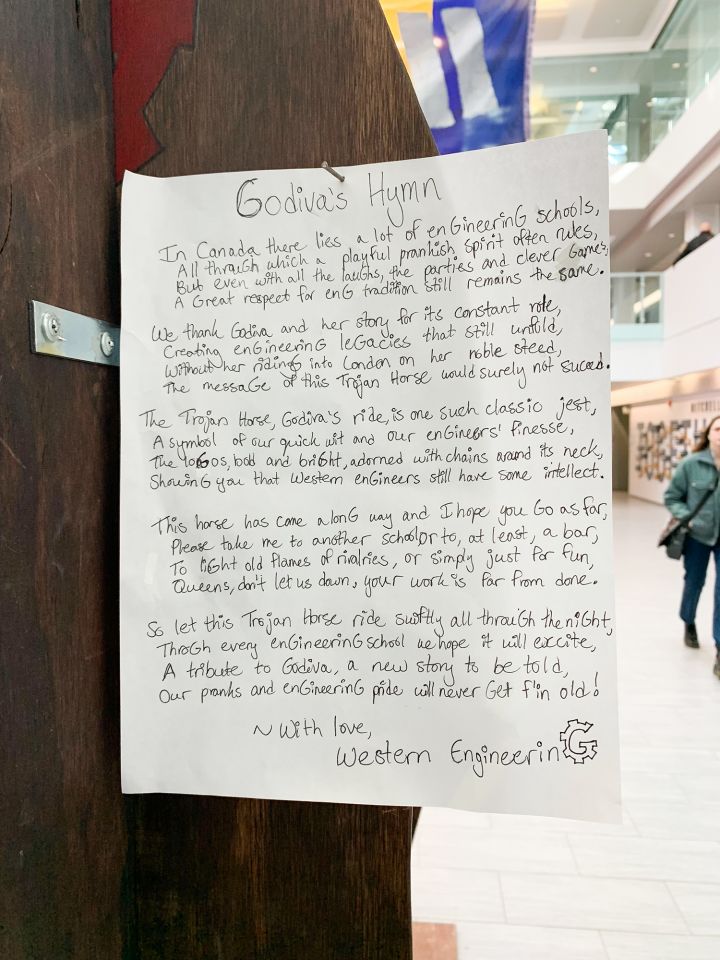 Godiva's Hymn
In Canada there lies a lot of enGineerinG schools,
All throuGh which a playful prankish spirit often rules,
But even with all the laughs, the parties and clever Games,
A Great respect for enG tradition still remains the same.
We thank Godiva and her story for its constant role,
Creating enGineerinG leGacies that still unfold,
Without her ridinG into London on her noble steed,
The messaGe of this Trojan Horse would surely not succeed.
The Trojan Horse, Godiva's ride, is one such classic jest,
A symbol of our quick wit and our enGineers' finesse,
The loGos, bold and briGht, adorned with chains around its neck,
ShowinG you that Western enGineers still have some intellect.
This horse has come a lonG way and I hope you Go as far,
Please take me to another school or to, at least, a bar,
To liGht old flames of rivalries, or simply just for fun,
Queens, don't let us down, your work is far from done.
So let this Trojan Horse ride swiftly all throuGh the niGht,
ThroGh every enGineerinG school we hope it will excite,
A tribute to Godiva, a new story to be told,
Our pranks and enGineerinG pride will never Get f'in old!
~ With love,
Western EngineerinG
MITCHELL